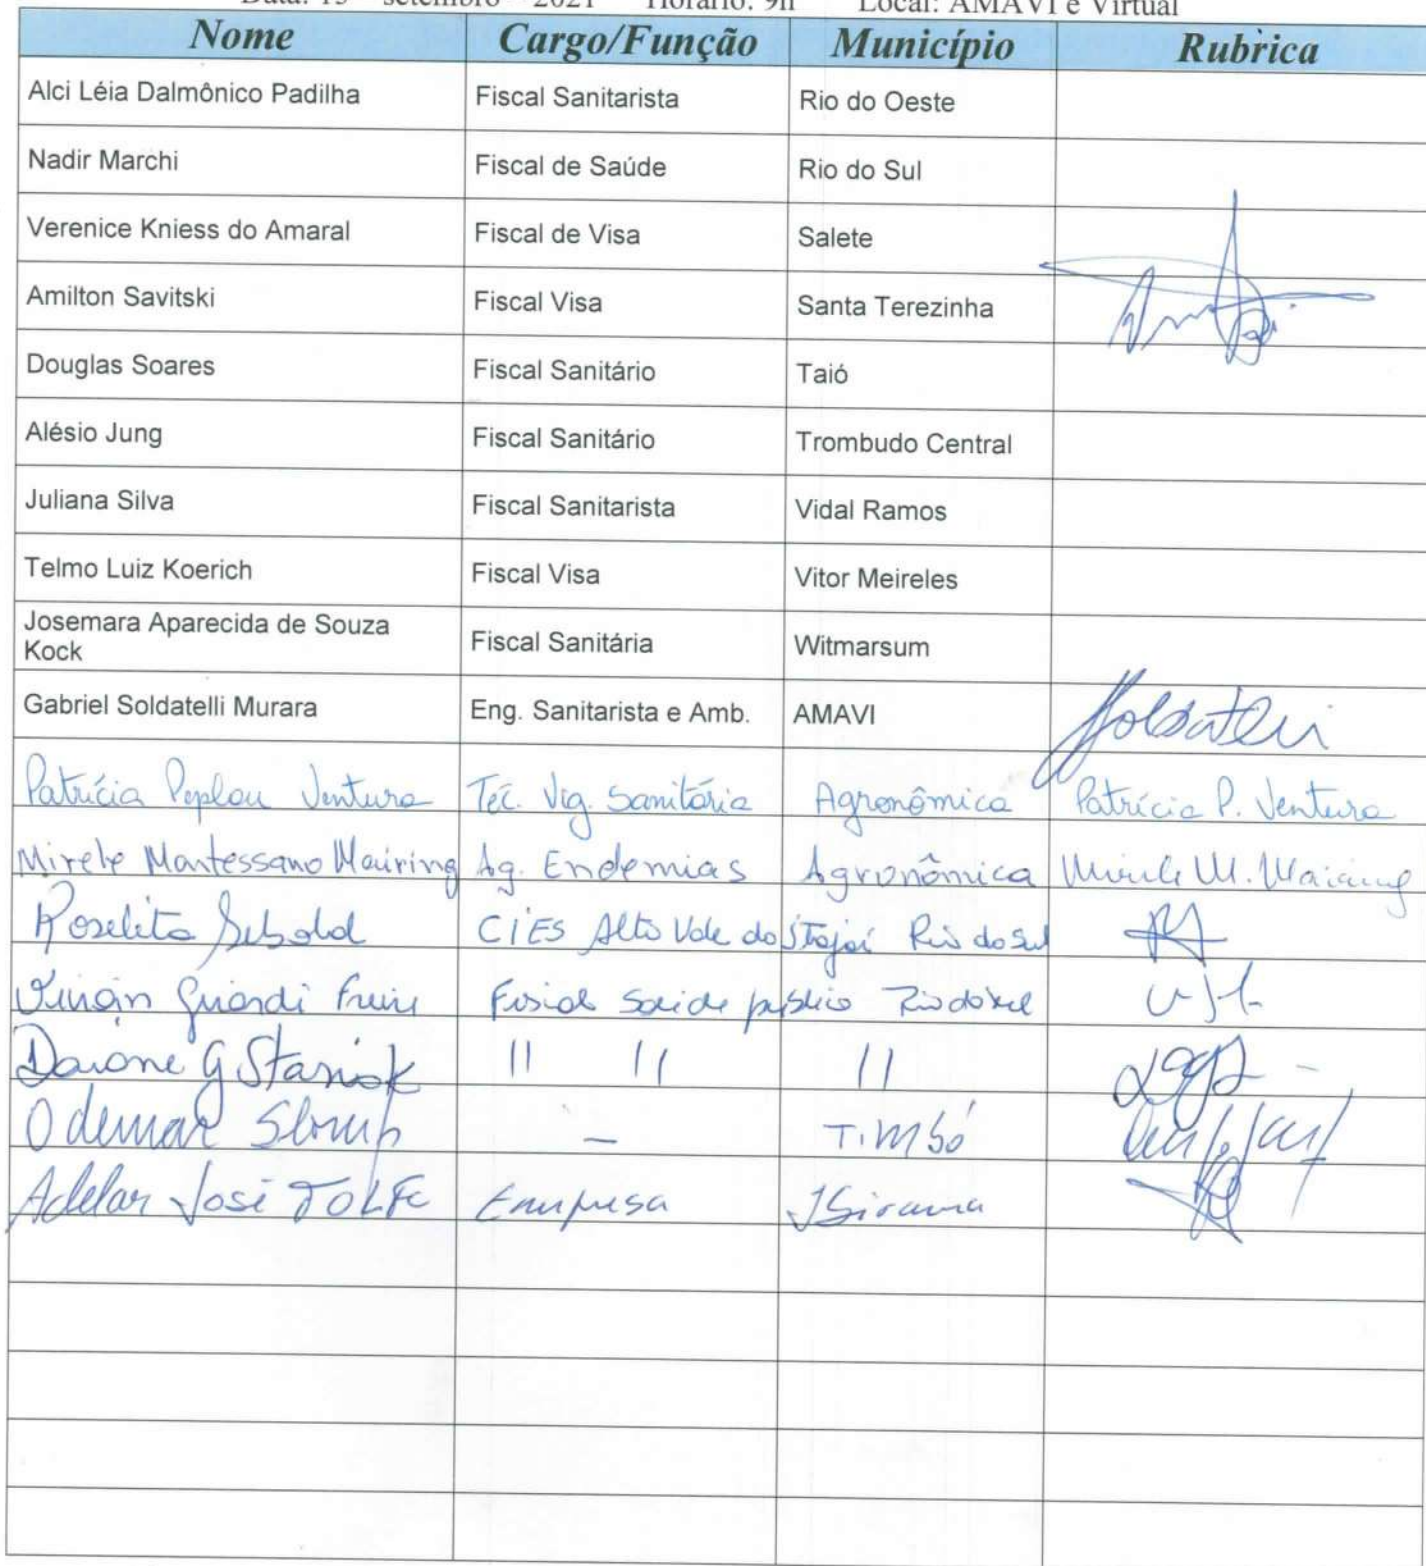 Data: 15 setembro 2021 Horário: 9h Local: AMAVI e Virtual
Nome Cargo/Função Município Rubrica
Alci Léia Dalmônico Padilha Fiscal Sanitarista Rio do Oeste
Nadir Marchi Fiscal de Saúde Rio do Sul
Verenice Kniess do Amaral Fiscal de Visa Salete
Amilton Savitski Fiscal Visa Santa Terezinha
Douglas Soares Fiscal Sanitário Taió
Alésio Jung Fiscal Sanitário Trombudo Central
Juliana Silva Fiscal Sanitarista Vidal Ramos
Telmo Luiz Koerich Fiscal Visa Vitor Meireles
Josemara Aparecida de Souza
Kock Fiscal Sanitária Witmarsum
Gabriel Soldatelli Murara Eng. Sanitarista e Amb. AMAVI Soldatelli
Patrícia Peplau Ventura Téc. Vig. Sanitária Agronômica Patrícia P. Ventura
Mirele Mantessano Mairing Ag. Endemias Agronômica
Roselita Sebold CIES Alto Vale do Itajaí Rio do Sul
Fiscal Saúde Rio do Sul
Daione G Staniok 11 11 11
Odemar Slomp - Timbó
Adelar José Empresa Ibirama